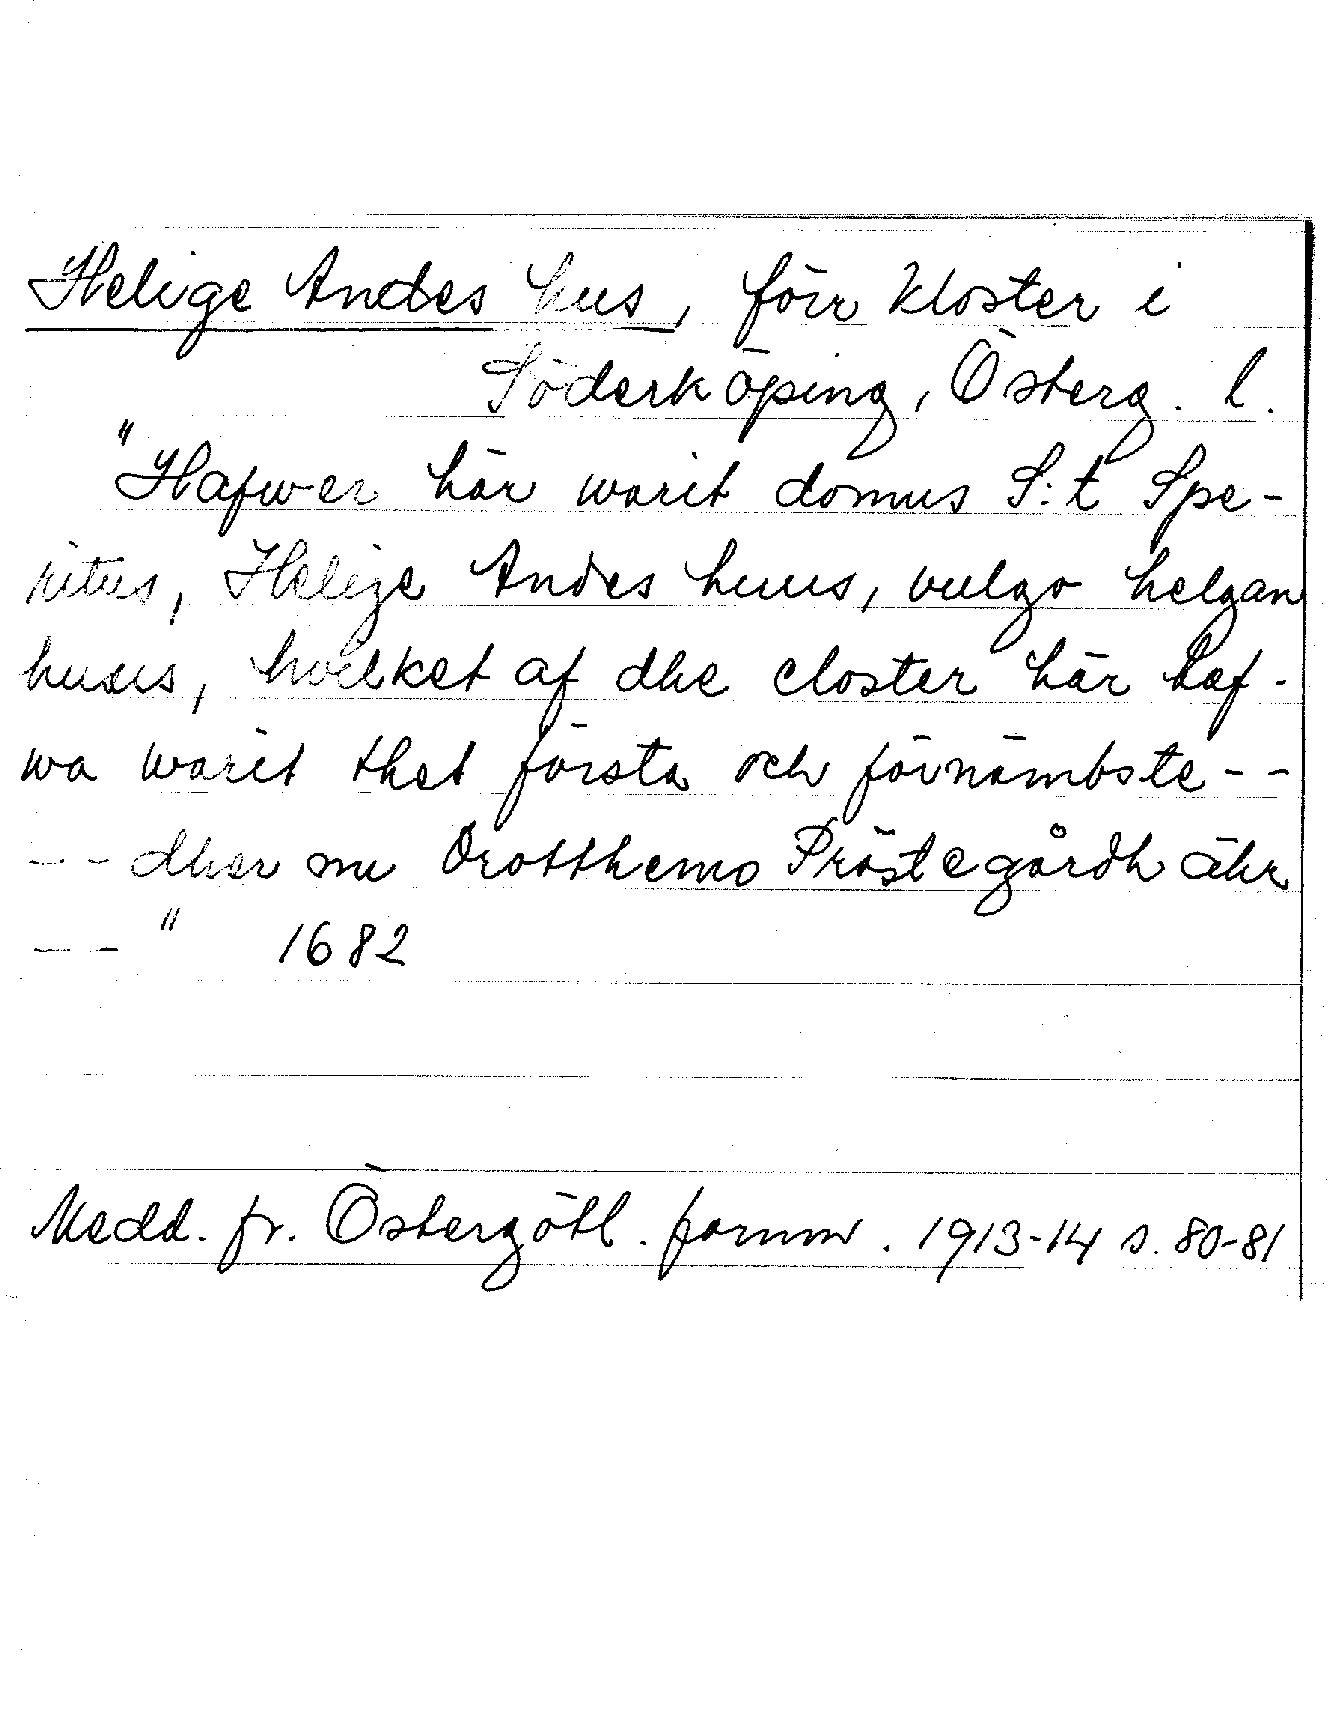 Helige Andes hus, förr kloster i
Söderköping, Österg. l.
"Hafwer här warit domus S:t Spi-
ritus, Helige Andes huus, vulgo helgan
huus, hvilket af dhe closter här haf-
wa warit thet första och förnämbste - -
- - dher nu Drotthems Prästegårdh ähr
- - " 1682
Medd. fr. Östergötl. fornm. 1913-14 s. 80-81